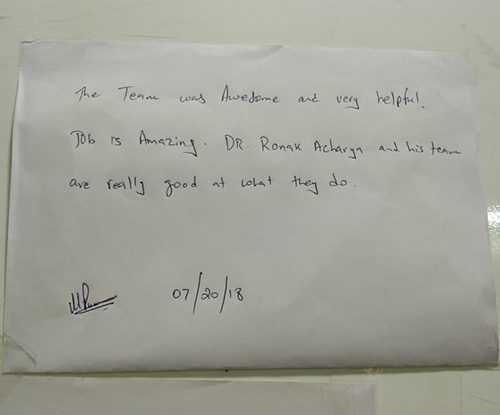 The Team was Awesome and very helpful.
Job is Amazing. DR. Ronak Acharya and his team
are really good at what they do.
07/20/18